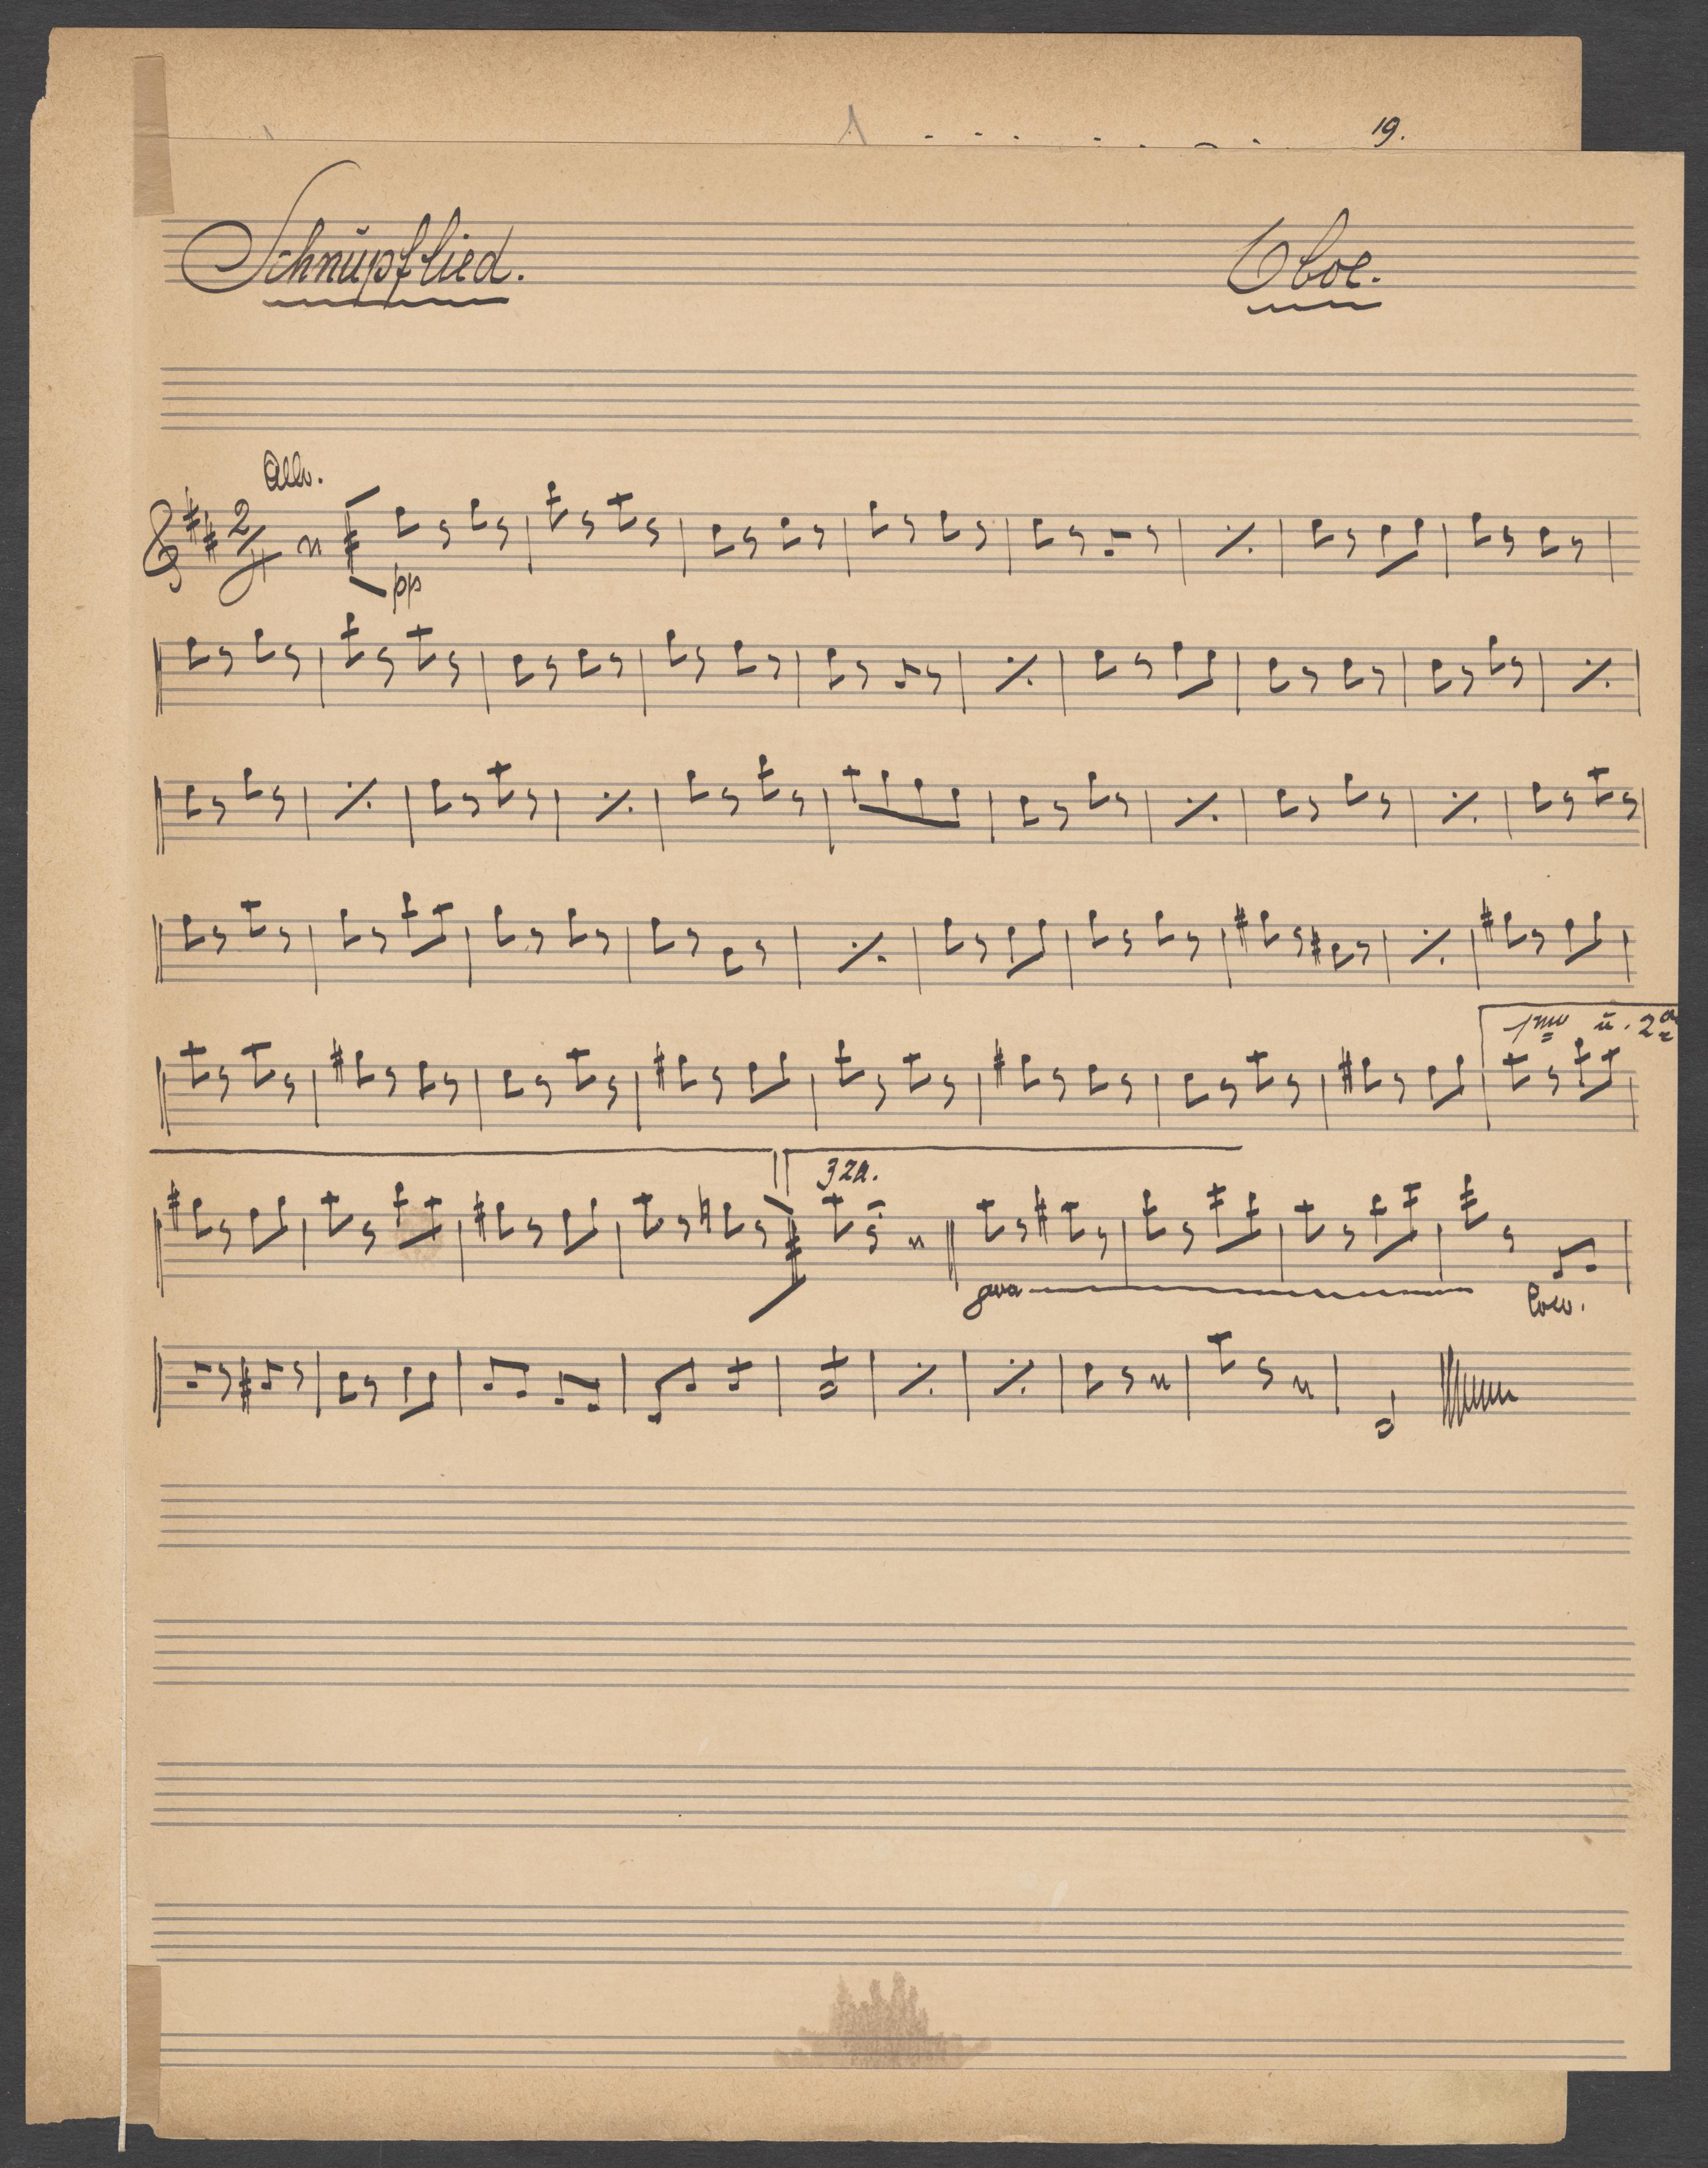 19.
Schnupflied. Oboe.
Allo.
2/4
pp
1mo u. 2do
3za.
8va
loco.